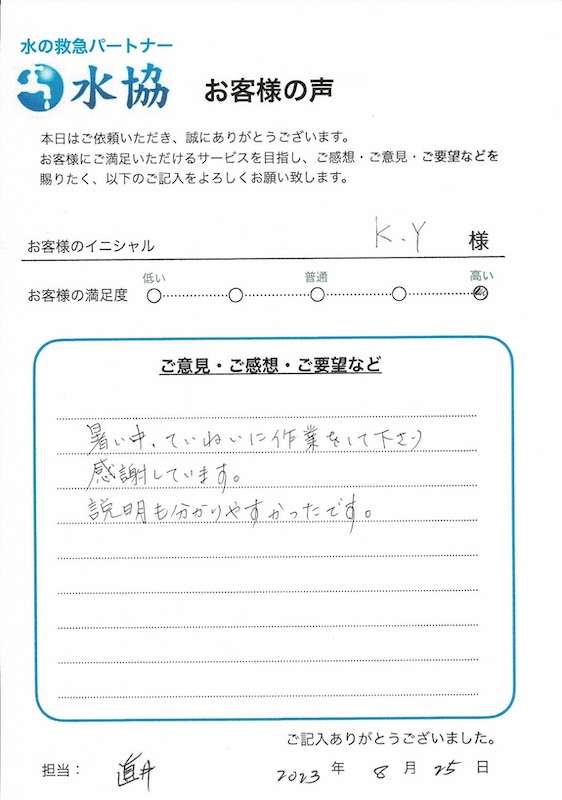 水の救急パートナー
水協 お客様の声
本日はご依頼いただき、誠にありがとうございます。
お客様にご満足いただけるサービスを目指し、ご感想・ご意見・ご要望などを
賜りたく、以下のご記入をよろしくお願い致します。
お客様のイニシャル K.Y 様
低い 普通 高い
お客様の満足度
ご意見・ご感想・ご要望など
暑い中、ていねいに作業をして下さり
感謝しています。
説明も分かりやすかったです。
ご記入ありがとうございました。
担当： 直井 2023 年 8 月 25 日